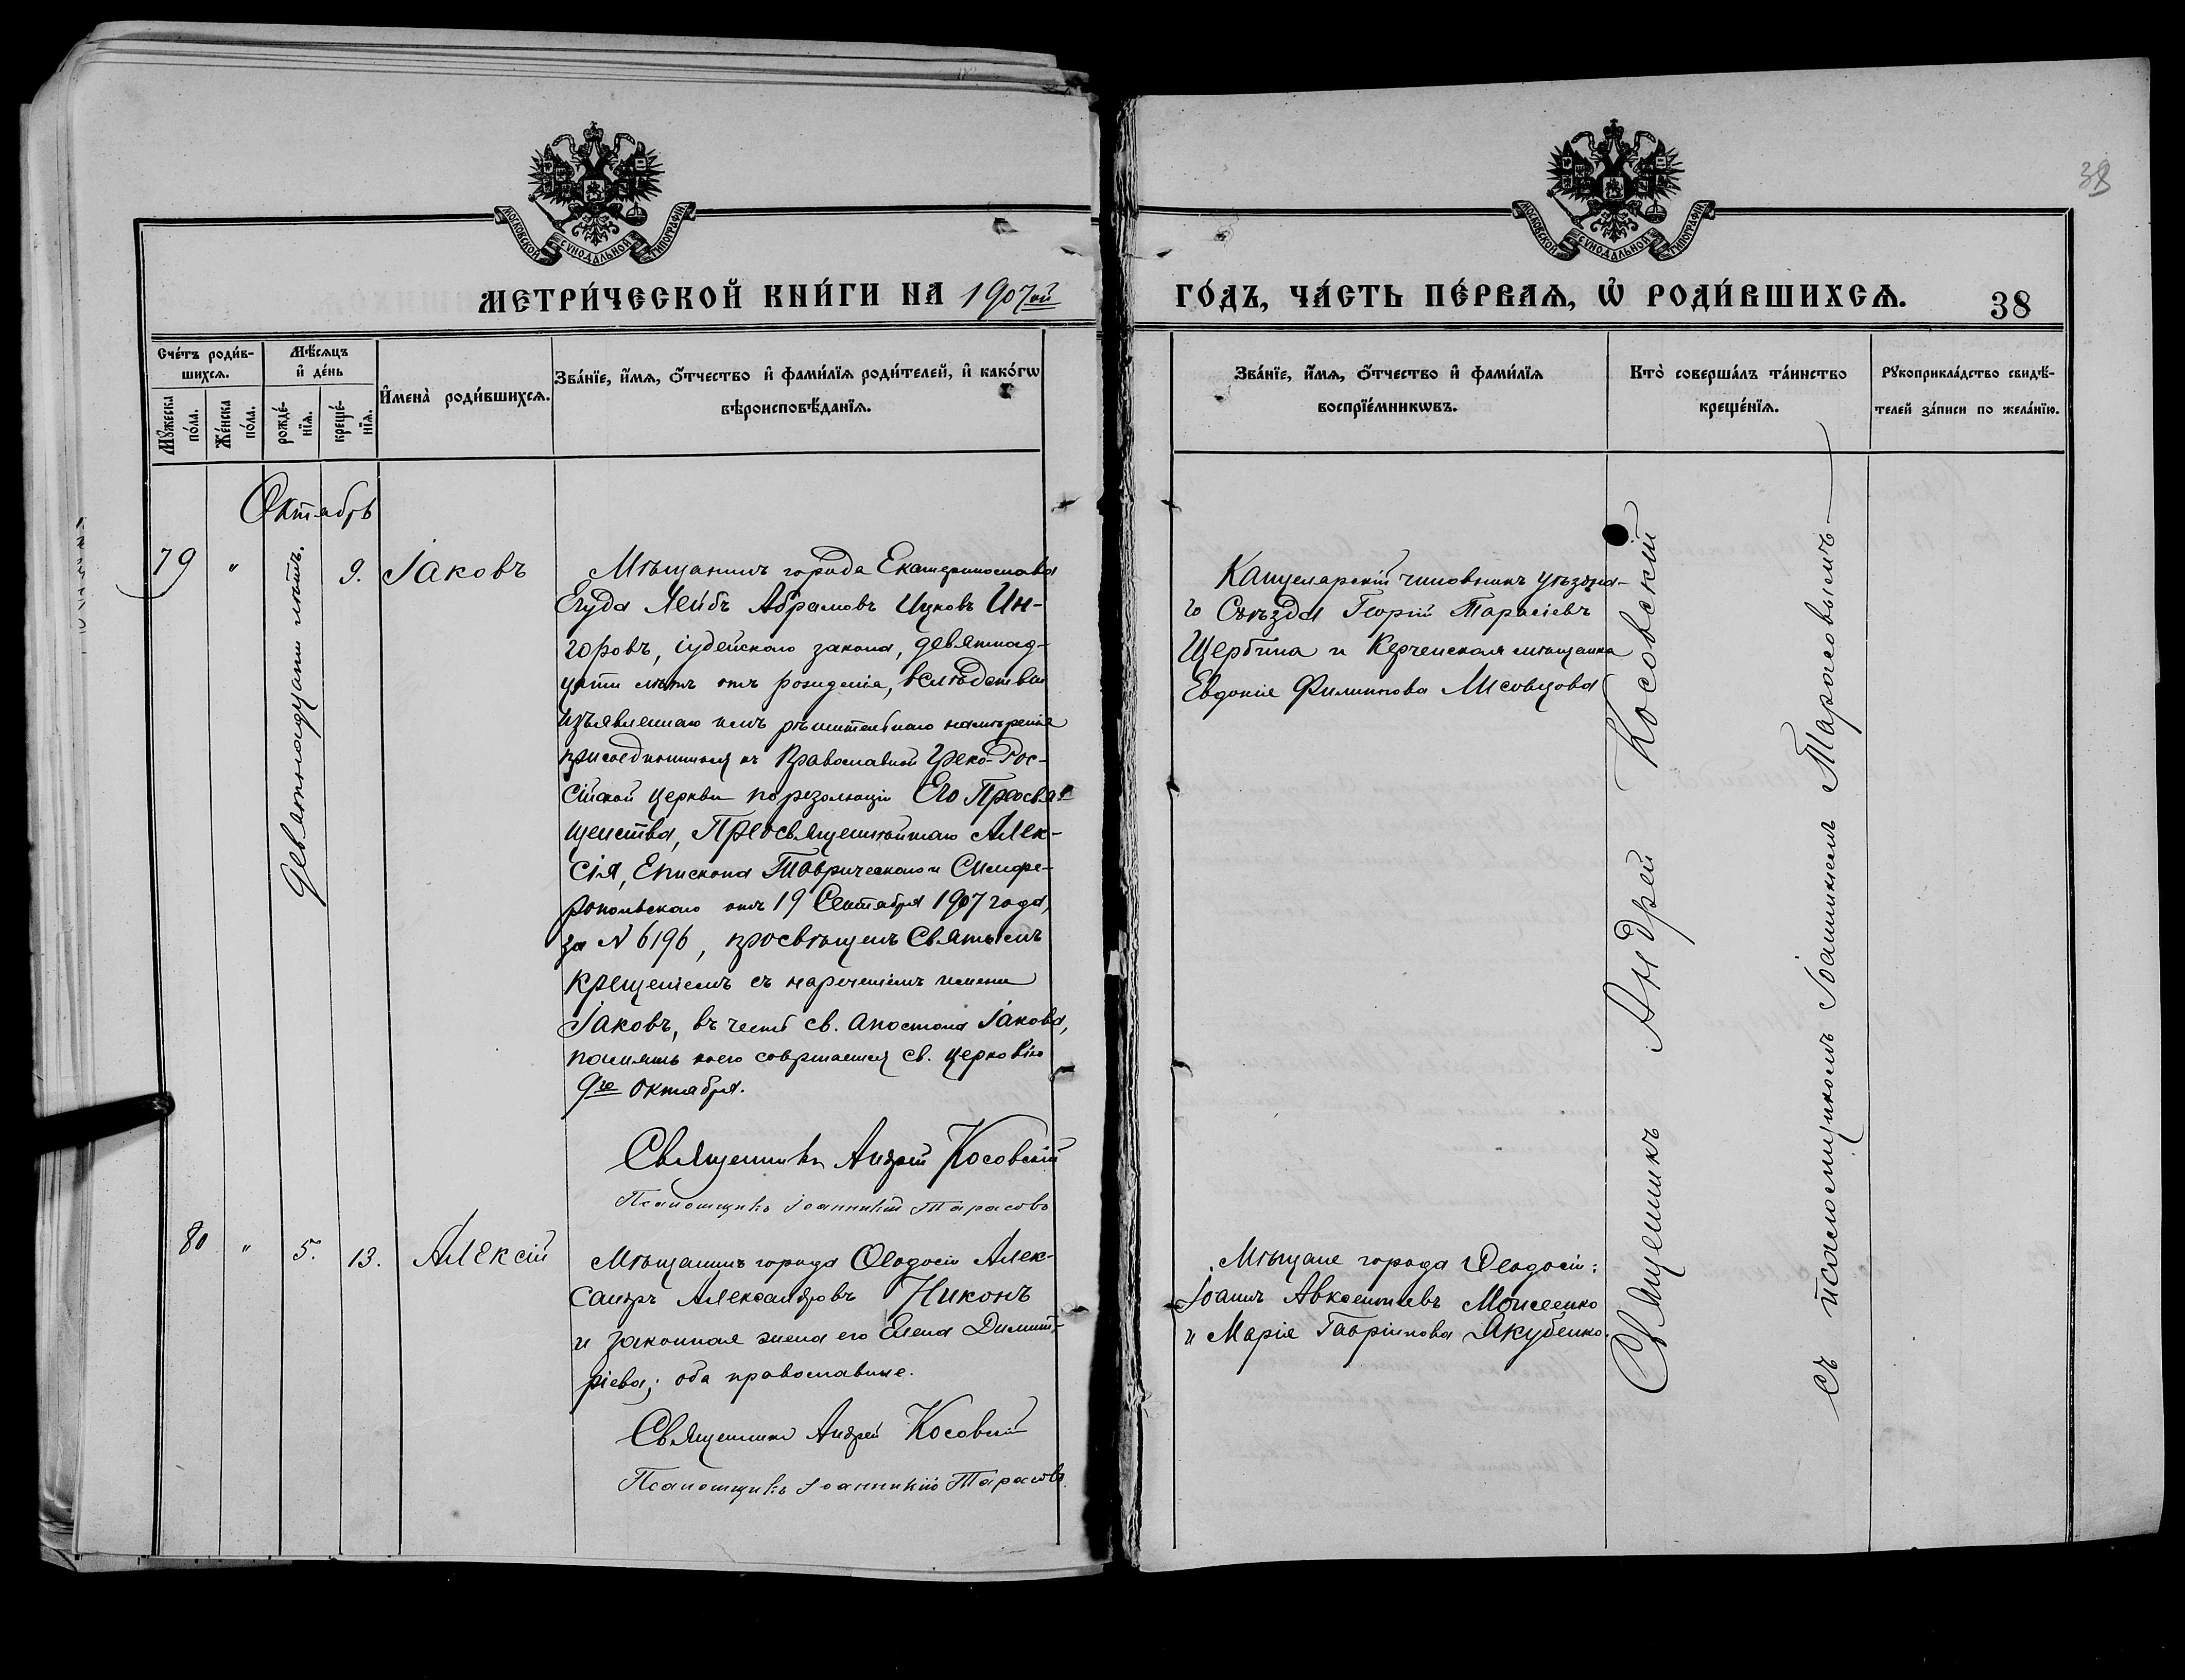 38
МОСКОВСКОЙ СѴНОДАЛЬНОЙ ТИПОГРАФІИ
МОСКОВСКОЙ СѴНОДАЛЬНОЙ ТИПОГРАФІИ
МЕТРИ́ЧЕСКОЙ КНИ́ГИ НА 1907ой
ГО́ДЪ, ЧА́СТЬ ПЕ́РВАѦ, Ѡ҆ РОДИ́ВШИХСѦ.
38
Сче́тъ роди́в-
шихсѧ.
Мѣ́сѧцъ
и҆ де́нь
Мꙋ́жеска
по́ла.
Же́нска
по́ла.
рожде́-
нїѧ.
креще́-
нїѧ.
И҆мена̀ роди́вшихсѧ.
Зва́нїе, и҆́мѧ, ѻ҆́тчество и҆ фами́лїѧ роди́телей, и҆ како́гѡ
вѣроисповѣ́данїѧ.
Зва́нїе, и҆́мѧ, ѻ҆́тчество и҆ фами́лїѧ
воспрїе́мникѡвъ.
Кто̀ соверша́лъ та́инство
креще́нїѧ.
Рꙋкоприкла́дство свидѣ́-
телей за́писи по жела́нїю.
Октябрь
79
"
Девятнадцати лѣтъ.
9.
Іаковъ
Мѣщанинъ города Екатеринослава
Егуда Лейбъ Абрамовъ Ицковъ Ин-
горовъ, іудейскаго закона, девятнад-
цати лѣтъ отъ рожденія, вслѣдствіи
изъявленнаго имъ рѣшительнаго намѣренія
присоединиться къ Православной Греко-Рос-
сійской церкви по резолюціи Его Преосвя-
щенства, Преосвященнѣйшаго Алек-
сія, Епископа Таврическаго и Симфе-
ропольскаго отъ 19 Сентября 1907 года,
за N 6196, просвѣщенъ Святымъ
крещеніемъ съ нареченіемъ имени
Іаковъ, въ честь св. Апостола Іакова,
память коего совершается св. церковію
9го Октября.
Священникъ Андрей Косовскій
Псаломщикъ Іоанникій Тарасовъ
Канцелярскій чиновникъ уѣздна-
го Съѣзда Георгій Тарасіевъ
Щербина и Керченская мѣщанка
Евдокія Филиппова Лисовцова
Священникъ Андрей Косовскій
съ псаломщикомъ Іоанникіемъ Тарасовымъ
80
"
5.
13.
Алексій
Мѣщанинъ города Ѳеодосіи Алек-
сандръ Александровъ Никонъ
и законная жена его Елена Димит-
ріева; оба православные.
Священникъ Андрей Косовскій
Псаломщикъ Іоанникій Тарасовъ.
Мѣщане города Ѳеодосіи:
Іоаннъ Авксентіевъ Моисеенко
и Марія Гавріилова Якубенко.